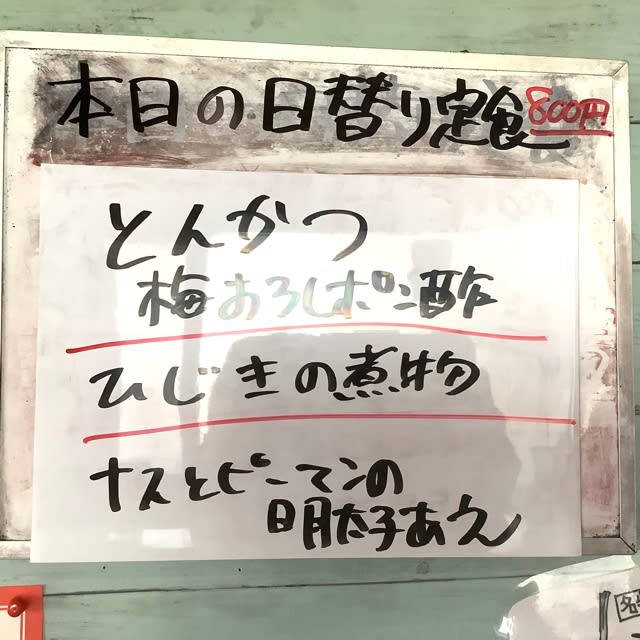 本日の日替り定食 800円
とんかつ
梅おろしポン酢
ひじきの煮物
ナスとピーマンの
明太子あえ